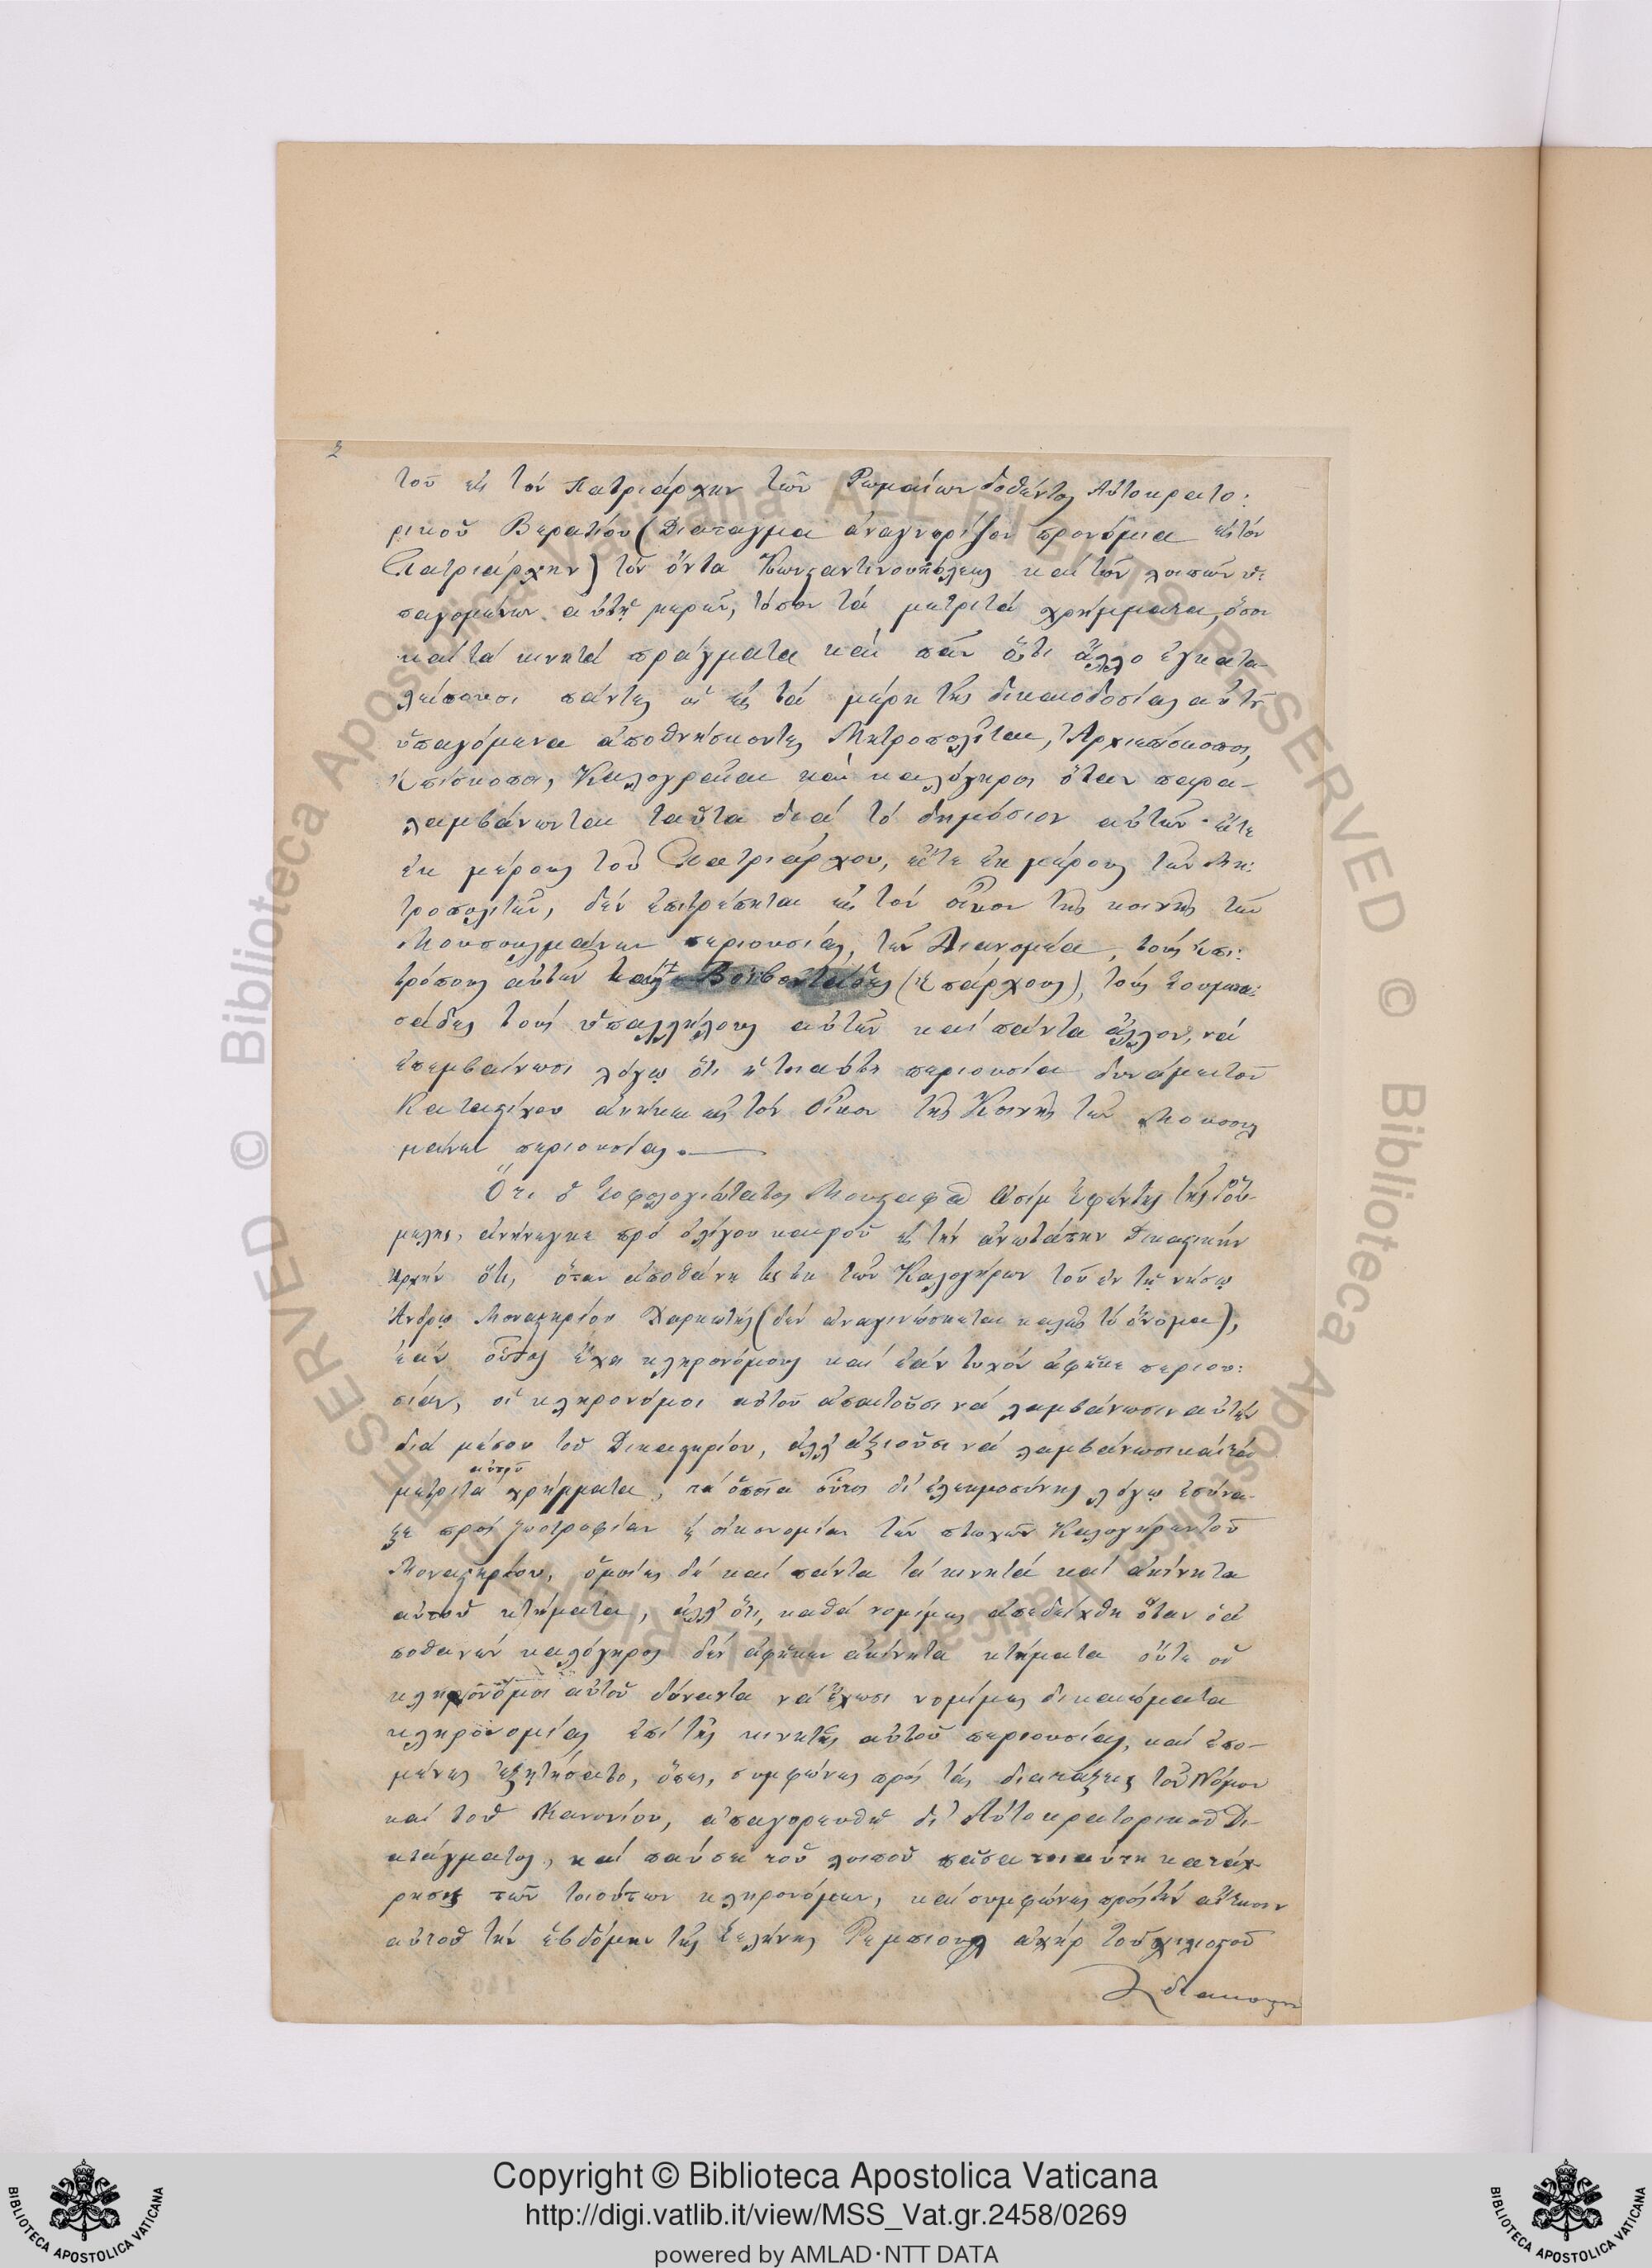 2
τοῦ εἰς τὸν Πατριάρχην τῶν Ῥωμαίων δοθέντος Αὐτοκρατο:
ρικοῦ Βερατίου (Διάταγμα ἀναγνωρίζον προνόμια εἰς τὸν
Πατριάρχην) τὸν ὄντα Κωνσταντινουπόλεως καὶ τῶν λοιπῶν ὑ:
παγομένων αὐτῇ μερῶν, τόσον τὰ μετρητὰ χρήμματα, ὅσον
καὶ τὰ κινητὰ πράγματα καὶ πᾶν ὅ,τι ἄλλο ἐγκατα-
λείπουσι πάντες οἱ εἰς τὰ μέρη τῆς δικαιοδοσίας αὐτοῦ
ὑπαγόμενα ἀποθνήσκοντες Μητροπολῖται, Ἀρχιεπίσκοποι,
Ἐπίσκοποι, Καλογραῖαι καὶ καλόγηροι ὅταν παρα-
λαμβάνωνται ταῦτα διὰ τὸ δημόσιον αὐτῶν· εἴτε
ἐκ μέρους τοῦ Πατριάρχου, εἴτε ἐκ μέρους τῶν Μη:
τροπολιτῶν, δὲν ἐπιτρέπηται εἰς τὸν οἶκον τῆς κοινῆς τῶν
Μουσουλμάνων περιουσίας, τὸν Διανομέα, τοὺς ἐπι:
τρόπους αὐτῶν τοὺς Βοϊβοντάδες (Ἐπάρχους), τοὺς Σουμπα:
σάδες τοὺς ὑπαλλήλους αὐτῶν καὶ πάντα ἄλλον, νὰ
ἐπεμβαίνωσι λόγῳ ὅτι ἡ τοιαύτη περιουσία δυνάμει τοῦ
Καταστίχου ἀνήκει εἰς τὸν Οἶκον τῆς Κοινῆς τῶν Μουσουλ
μάνων περιουσίας.
Ὅτι ὁ Σοφολογιώτατος Μουσταφᾶ Ἀσὶμ Ἐφέντης τῆς Ῥού-
μελης, ἀνήνεγκε πρὸ ὀλίγου καιροῦ εἰς τὴν ἀνωτάτην Δικαστικὴν
Ἀρχὴν ὅτι, ὅταν ἀποθάνῃ τις ἐκ τῶν Καλογήρων τοῦ ἐν τῇ νήσῳ
Ἄνδρῳ Μοναστηρίου Χαρκωτῆς (δὲν ἀναγινώσκεται καλῶς τὸ ὄνομα),
ἐὰν οὗτος ἔχει κληρονόμους καὶ ἐὰν τυχὸν ἀφῆκε περιου:
σίαν, οἱ κληρονόμοι αὐτοῦ ἀπαιτοῦσι νὰ λαμβάνωσιν αὐτὴν
διὰ μέσου τοῦ Δικαστηρίου, ἀλλ' ἀξιοῦσι νὰ λαμβάνωσι καὶ τὰ
αὐτοῦ
μετρητὰ χρήμματα, τὰ ὁποῖα οὗτος δι' ἐλεημοσύνης λόγῳ ἐσύνα-
ξε πρὸς ζωοτροφίαν ἢ οἰκονομίαν τῶν πτωχῶν Καλογήρων τοῦ
Μοναστηρίου, ὁμοίως δὲ καὶ πάντα τὰ κινητὰ καὶ ἀκίνητα
αὐτοῦ κτήματα, ἀλλ' ὅτι, καθὰ νομίμως ἀπεδείχθη ὅταν ὁ ἀ
ποθανὼν καλόγηρος δὲν ἀφῆκεν ἀκίνητα κτήματα οὔτε οἱ
κληρονόμοι αὐτοῦ δύνανται νὰ ἔχωσι νομίμως δικαιώματα
κληρονομίας ἐπὶ τῆς κινητῆς αὐτοῦ περιουσίας, καὶ ἑπο-
μένως ἐξῃτήσατο, ὅπως, συμφώνως πρὸς τὰς διατάξεις τοῦ Νόμου
καὶ τοῦ Κανονίου, ἀπαγορευθῇ δι' Αὐτοκρατορικοῦ Δι-
ατάγματος, καὶ παύσῃ τοῦ λοιποῦ πᾶσα τοιαύτη κατάχ-
ρησις τῶν τοιούτων κληρονόμων, καὶ συμφώνως πρὸς τὴν αἴτησιν
αὐτοῦ τὴν ἑβδόμην τῆς Σελήνης Ῥεμπιοὺλ ἀχὴρ τοῦ χιλιοστοῦ
Copyright © Biblioteca Apostolica Vaticana
http://digi.vatlib.it/view/MSS_Vat.gr.2458/0269
powered by AMLAD·NTT DATA